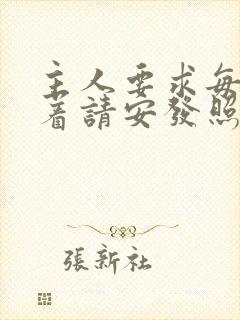 主人要求每
着請安發照
張新社